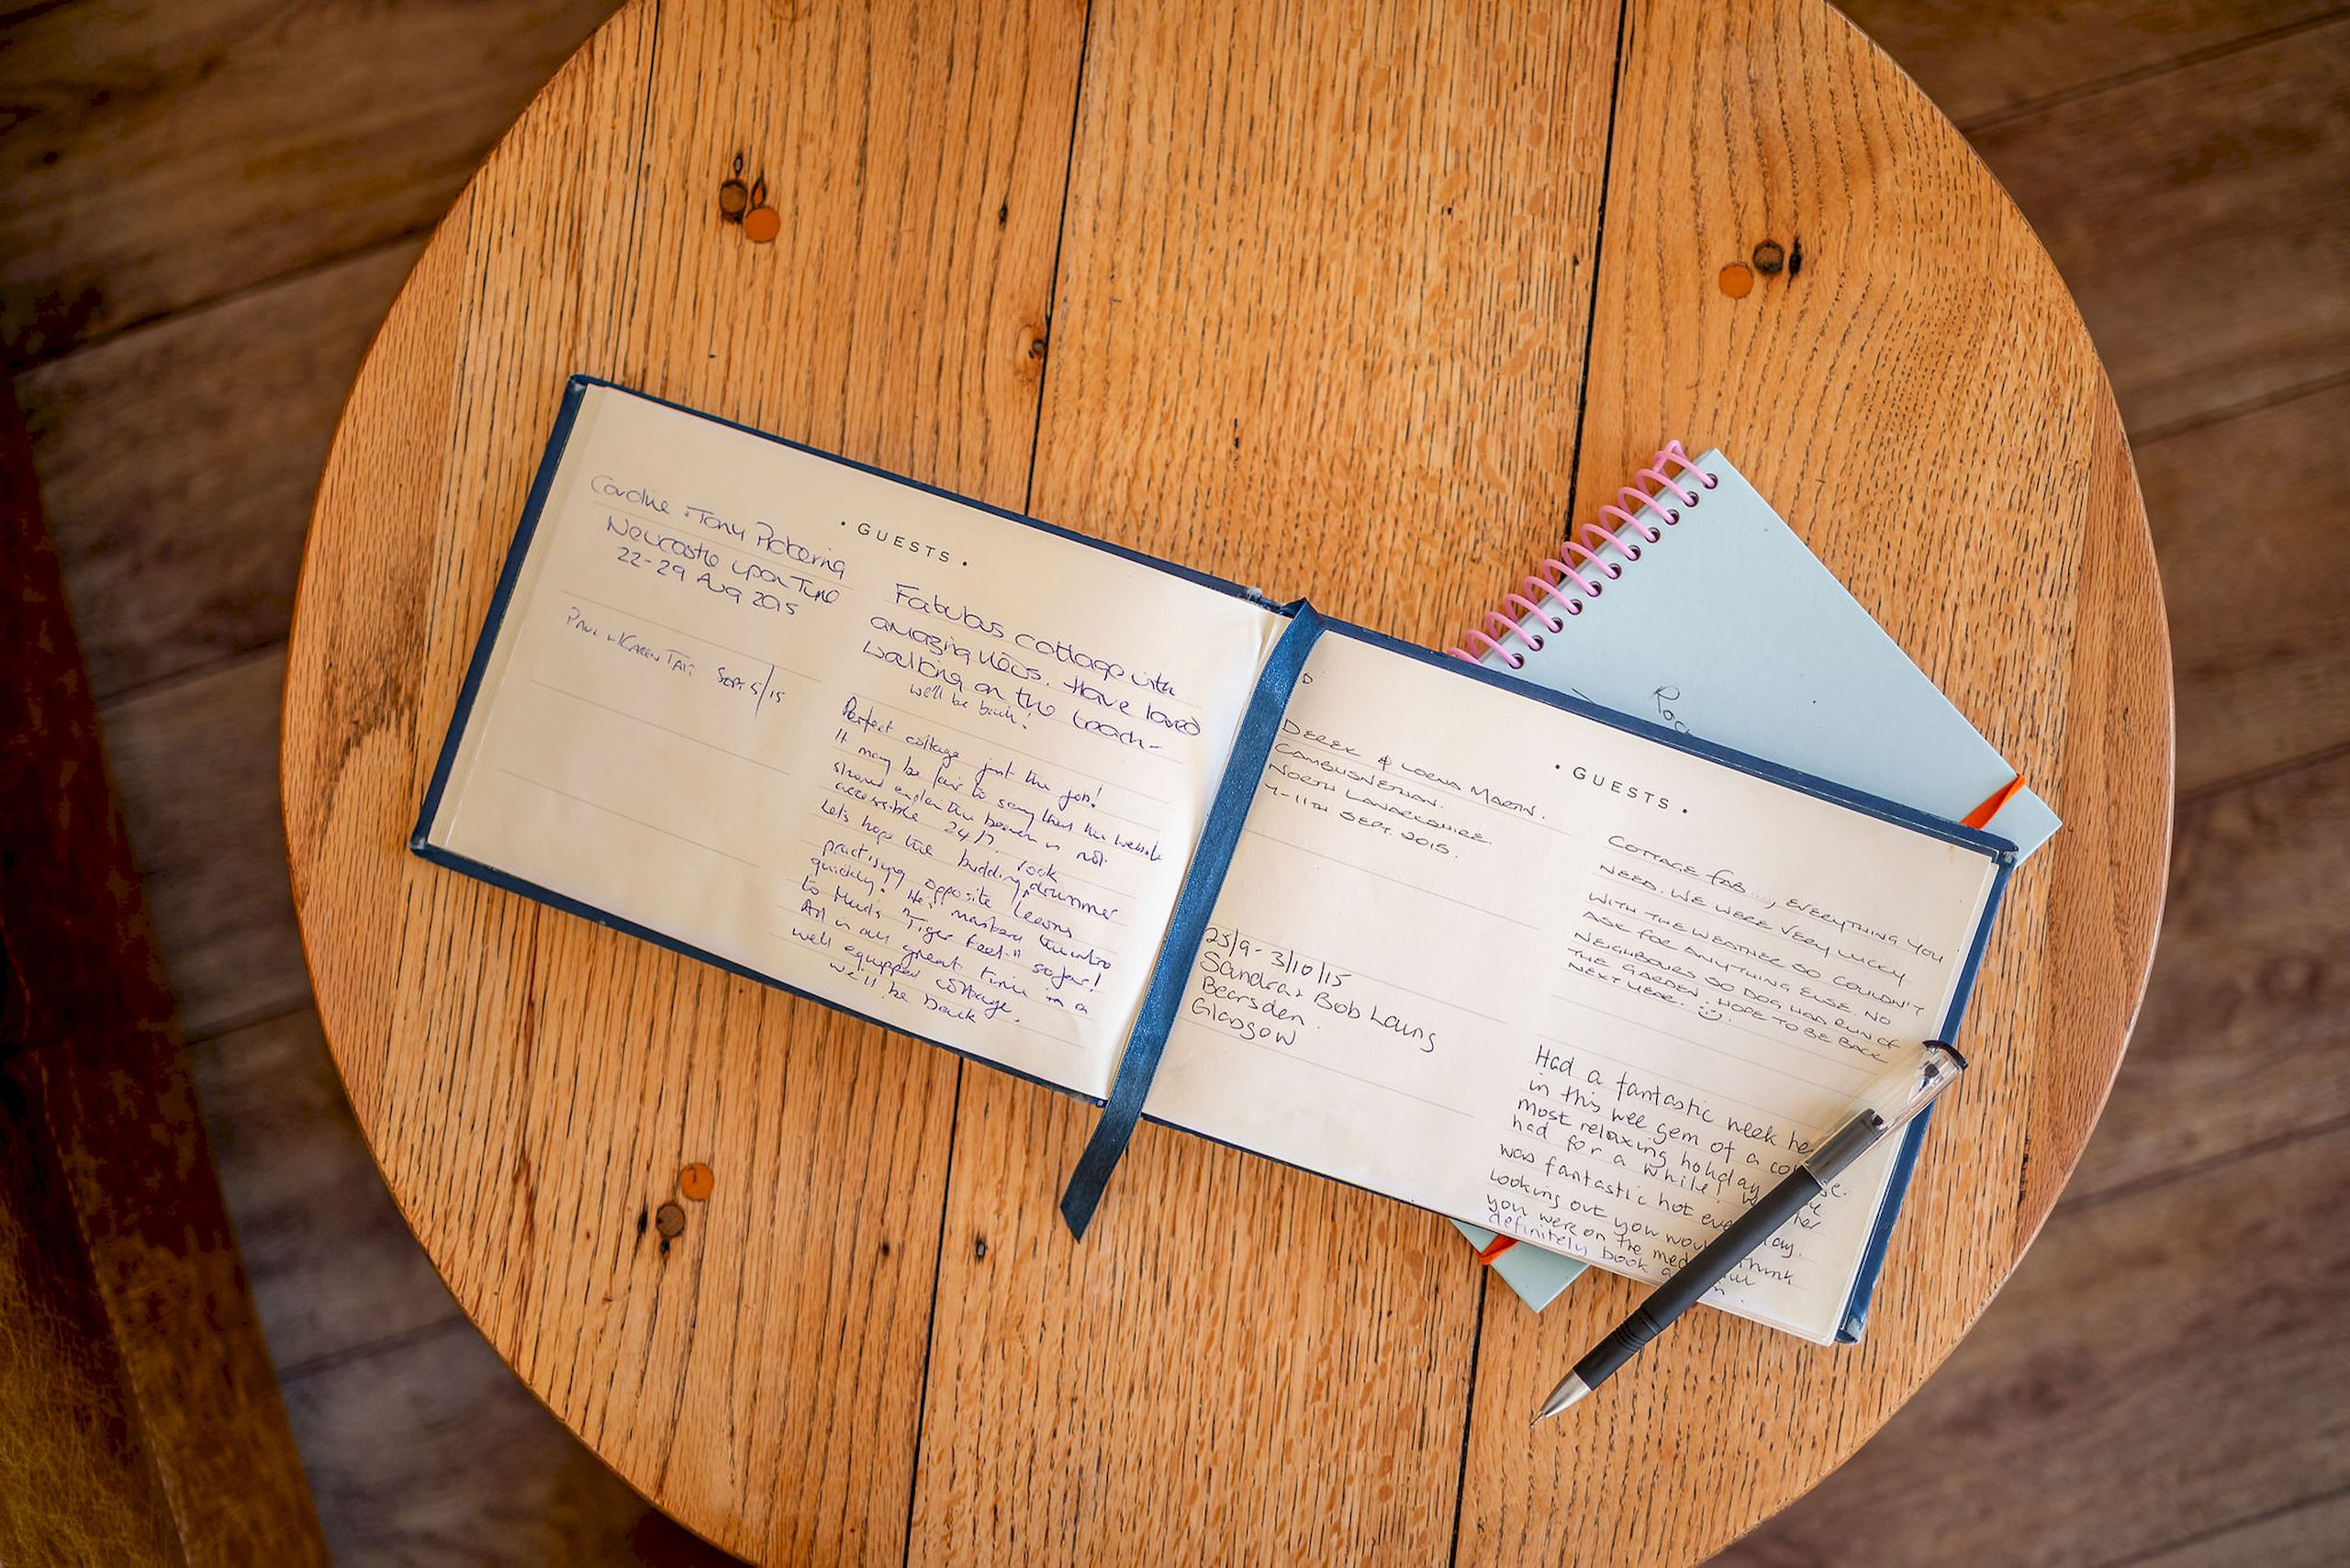 · GUESTS ·
Caroline + Tony Pickering
Newcastle upon Tyne
22-29 Aug 2015
Fabulous cottage with
amazing views. Have loved
walking on the beach-
we'll be back!
Paul + Karen Tait Sept 5/15
Perfect cottage just the job!
It may be fair to say that the website
should explain the beach is not
accessible 24/7.
Let's hope the budding rock drummer
practising opposite learns
quickly! He's mastered the intro
to Mud's "Tiger Feet" so far!
All in all great time in a
well equipped cottage.
we'll be back
· GUESTS ·
DEREK & LORNA MARTIN.
CAMBUSNETHAN.
NORTH LANARKSHIRE.
7-11TH SEPT. 2015.
COTTAGE FAB..., EVERYTHING YOU
NEED. WE WERE VERY LUCKY
WITH THE WEATHER SO COULDN'T
ASK FOR ANYTHING ELSE. NO
NEIGHBOURS SO DOG HAD RUN OF
THE GARDEN. HOPE TO BE BACK
NEXT YEAR.
25/9-3/10/15
Sandra + Bob Laing
Bearsden.
Glasgow
Had a fantastic week he
in this wee gem of a co
most relaxing holiday
had for a while!
was fantastic hot eve day.
Looking out you wou think
you were on the med
definitely book